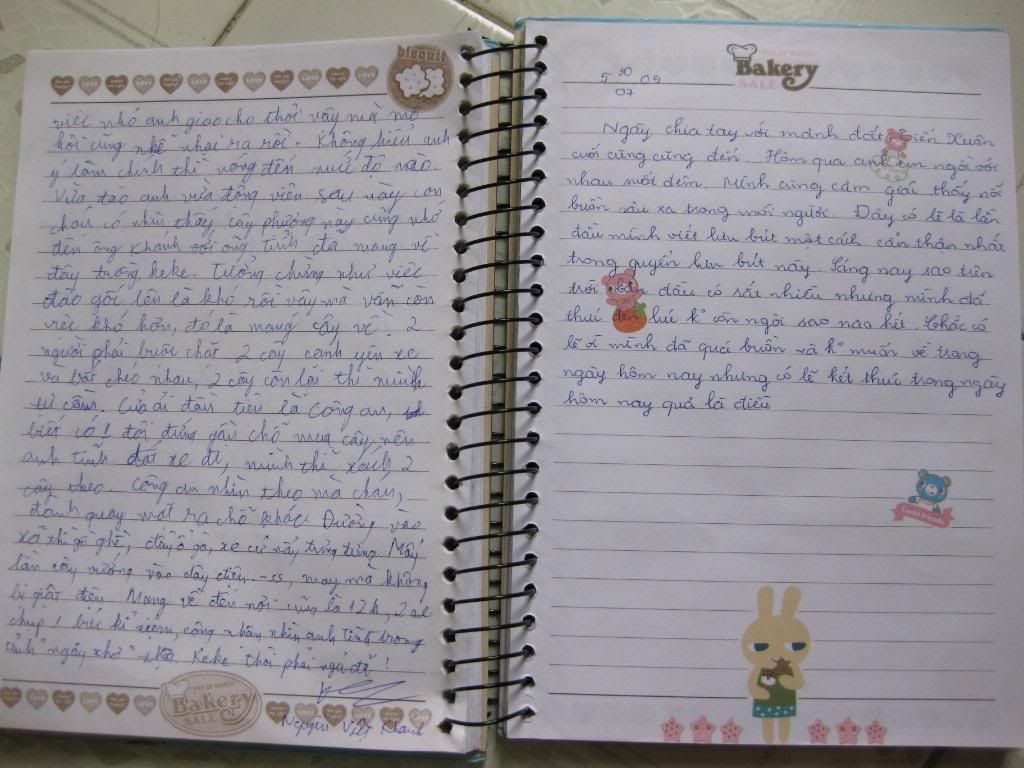 biscuit
việc nhỏ anh giao cho thôi vậy mà mồ
hôi cũng nhễ nhại ra rồi. Không hiểu anh
ý làm chính thì nóng đến mức độ nào.
Vừa đào anh vừa động viên sau này con
cháu có nhìn thấy cây phượng này cũng nhớ
đến ông Khanh với ông Tính đã mang về
đây trồng keke. Tưởng chừng như việc
đào gốc lên là khó rồi vậy mà vẫn còn
việc khó hơn, đó là mang cây về. 2
người phải buộc chặt 2 cây cạnh yên xe
và bắt chéo nhau, 2 cây còn lại thì mình
tự cầm. Cửa ải đầu tiên là Công an,
biết có 1 đội đứng gần chỗ mua cây nên
anh Tính dắt xe đi, mình thì xách 2
cây theo. Công an nhìn theo mà chán,
đành quay mặt ra chỗ khác. Đường vào
xã thì gồ ghề, đầy ổ gà, xe cứ nảy tưng tưng. Mấy
lần cây vướng vào dây điện, may mà không
bị giật điện. Mang về đến nơi cũng là 12h, 2 ae
chụp 1 bức kỉ niệm, công nhận nhìn anh Tính trong
ảnh "ngáy khò". Keke thôi phải ngủ đã!
Nguyễn Việt Khanh
PIES OF MARCH
Bakery
SALE
PIES OF MARCH
Bakery
SALE
5 30 09
07
Ngày chia tay với mảnh đất Biến Xuân
cuối cùng cũng đến. Hôm qua anh em ngồi với
nhau suốt đêm. Mình cũng cảm giác thấy nỗi
buồn sâu xa trong mỗi người. Đây có lẽ là lần
đầu mình viết lưu bút một cách cẩn thận nhất
trong quyển lưu bút này. Sáng nay sao trên
trời ban đầu có rất nhiều nhưng mình đã
thức đến lúc k° còn ngôi sao nào hết. Chắc có
lẽ vì mình đã quá buồn và k° muốn về trong
ngày hôm nay nhưng có lẽ kết thúc trong ngày
hôm nay quả là điều